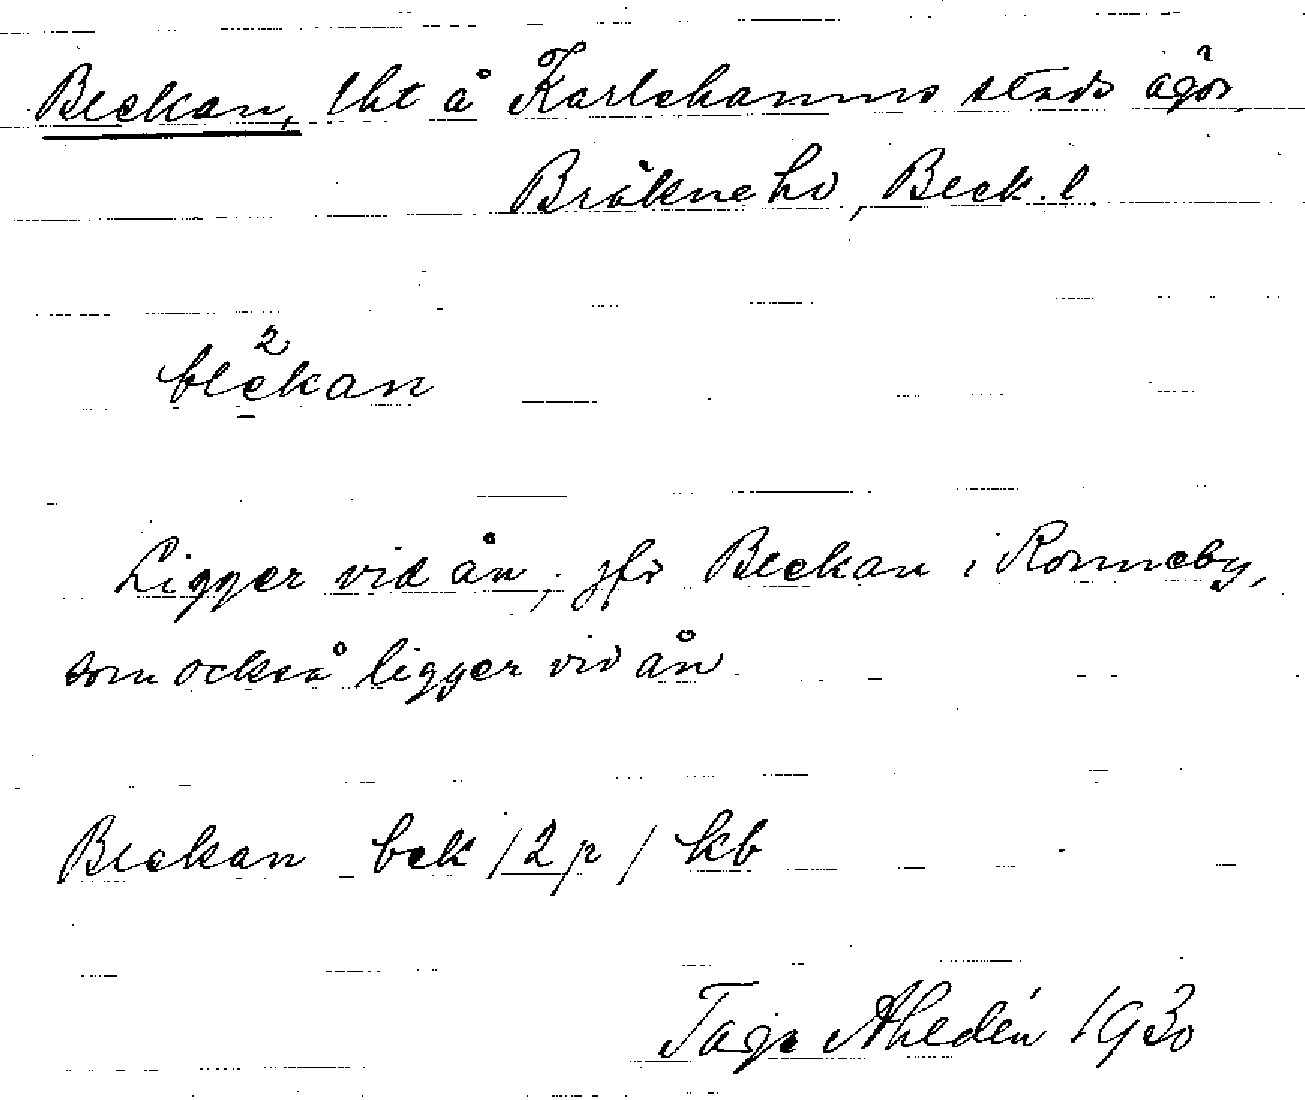 Blekan, lht å Karlshamns stads ägor
Bräkne hd, Blek. l.
blekan
2
Ligger vid ån, jfr Blekan i Ronneby,
som också ligger vid ån
Blekan bek /2 p/ kb
Tage Ahldén 1930